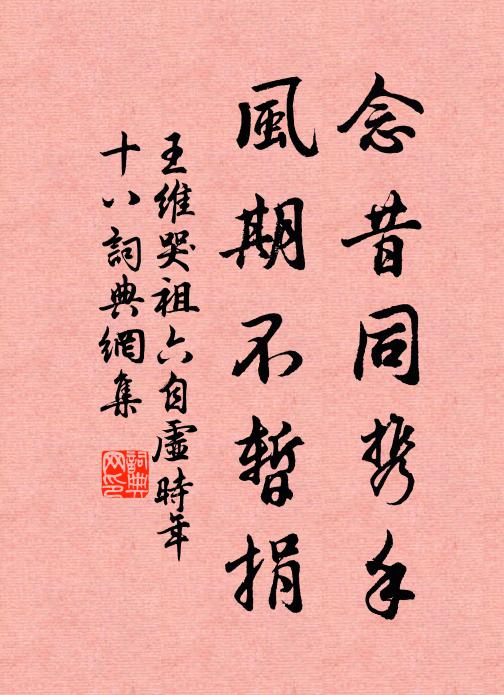 念昔同携手
風期不暫捐
王維哭祖六自虛時年
十八詞典網集
詞典
网印